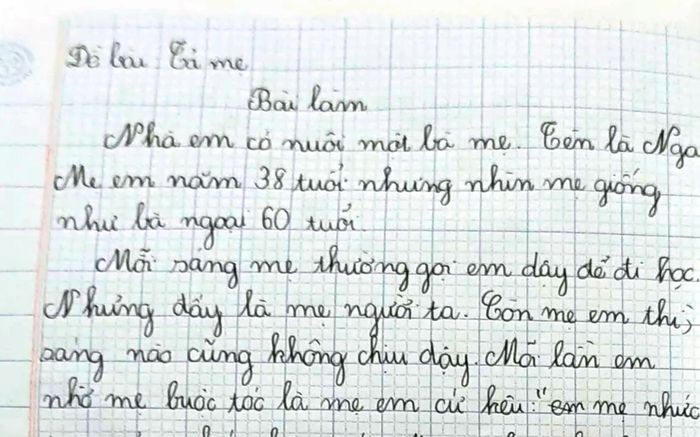 Đề bài: Tả mẹ
Bài làm
Nhà em có nuôi một bà mẹ. Tên là Nga
Mẹ em năm 38 tuổi nhưng nhìn mẹ giống
như bà ngoại 60 tuổi.
Mỗi sáng mẹ thường gọi em dậy để đi học.
Nhưng đấy là mẹ người ta. Còn mẹ em thì
sáng nào cũng không chịu dậy. Mỗi lần em
nhờ mẹ buộc tóc là mẹ em cứ kêu: "em mẹ nhức